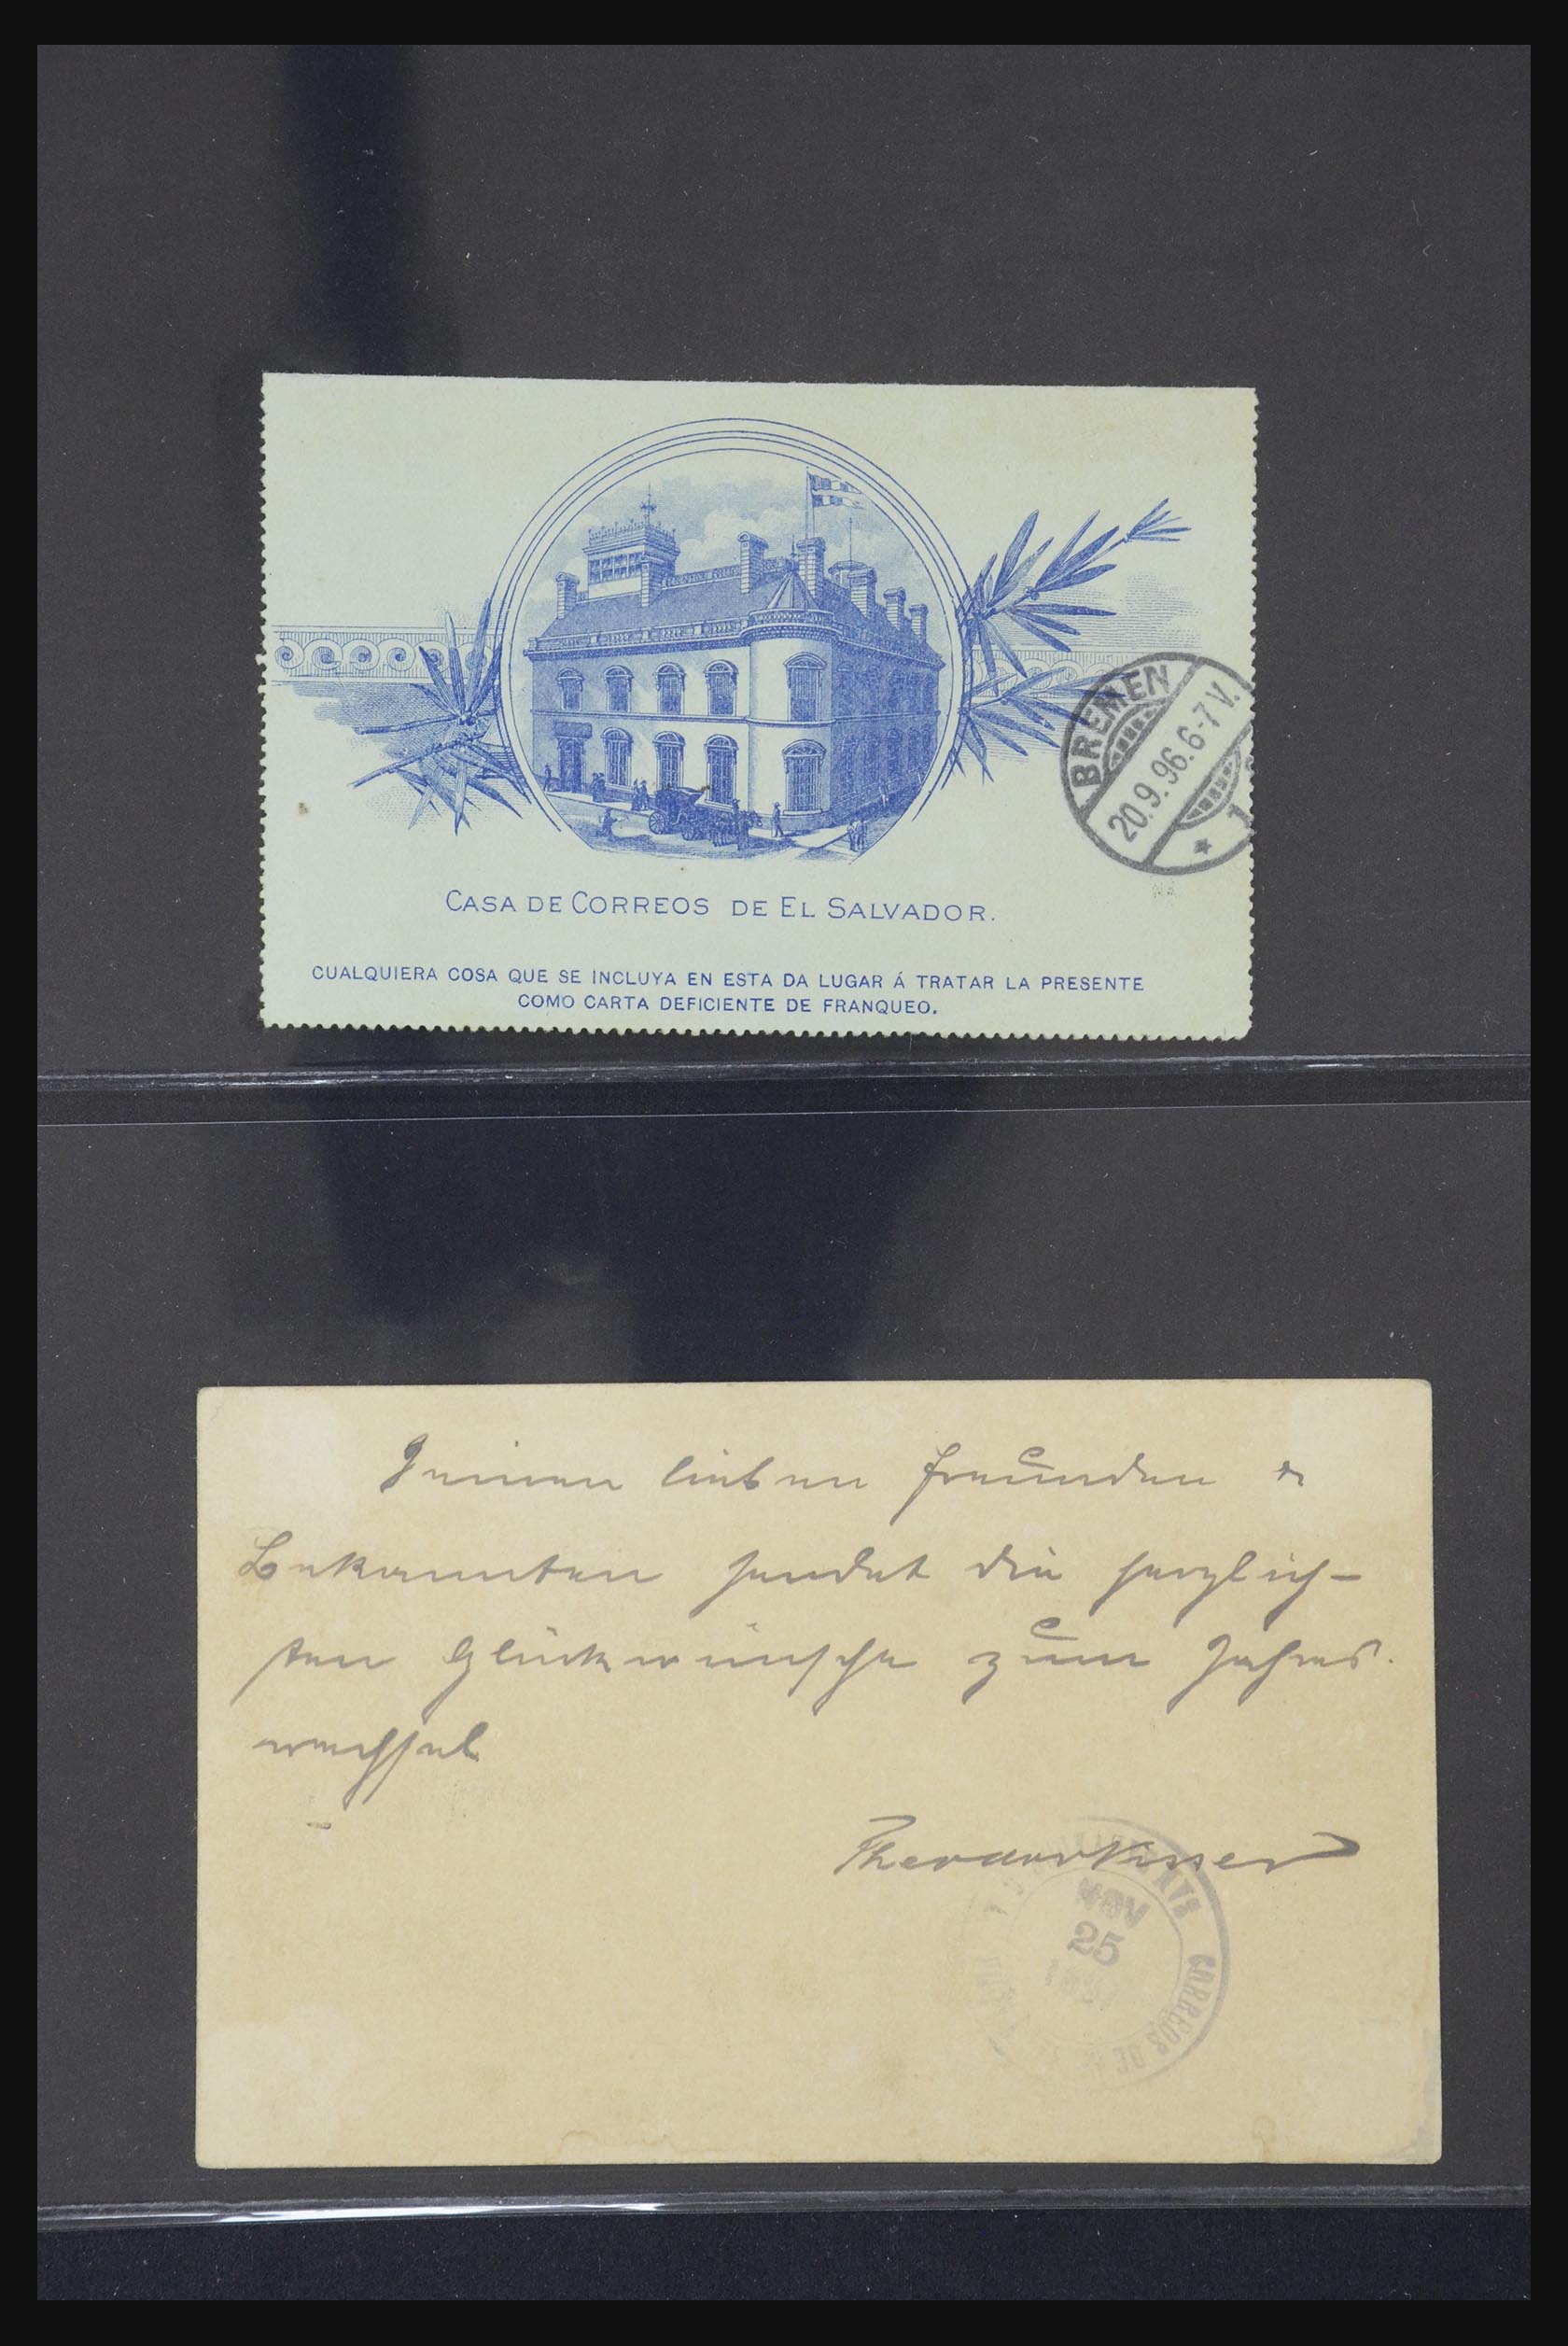 CASA DE CORREOS DE EL SALVADOR.
CUALQUIERA COSA QUE SE INCLUYA EN ESTA DA LUGAR Á TRATAR LA PRESENTE
COMO CARTA DEFICIENTE DE FRANQUEO.
BREMEN
20.9.96.6-7 V.
* 1
Seinen lieben Freunden &
Bekannten sendet die herzlich-
sten Glückwünsche zum Jahres-
wechsel
Theodor
NOV
25
CORREOS DE